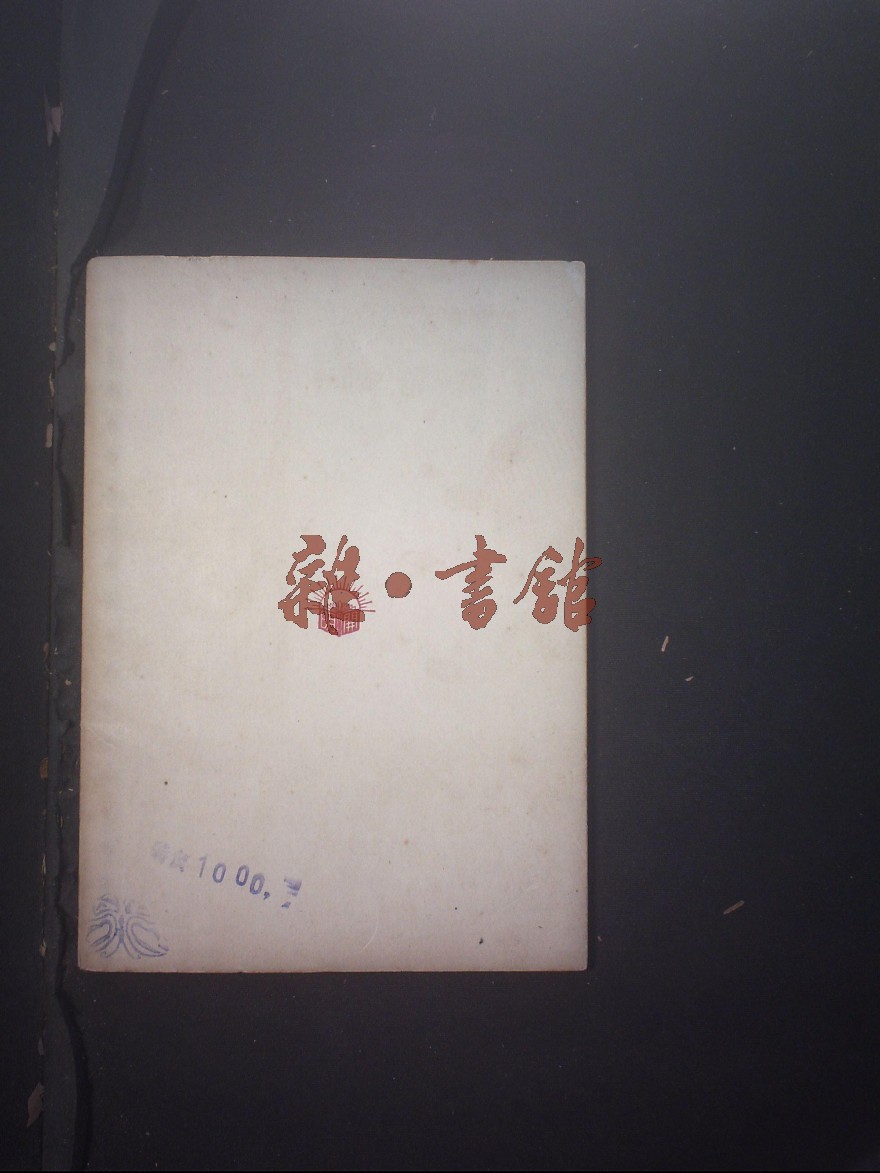 雜·書館
1000.